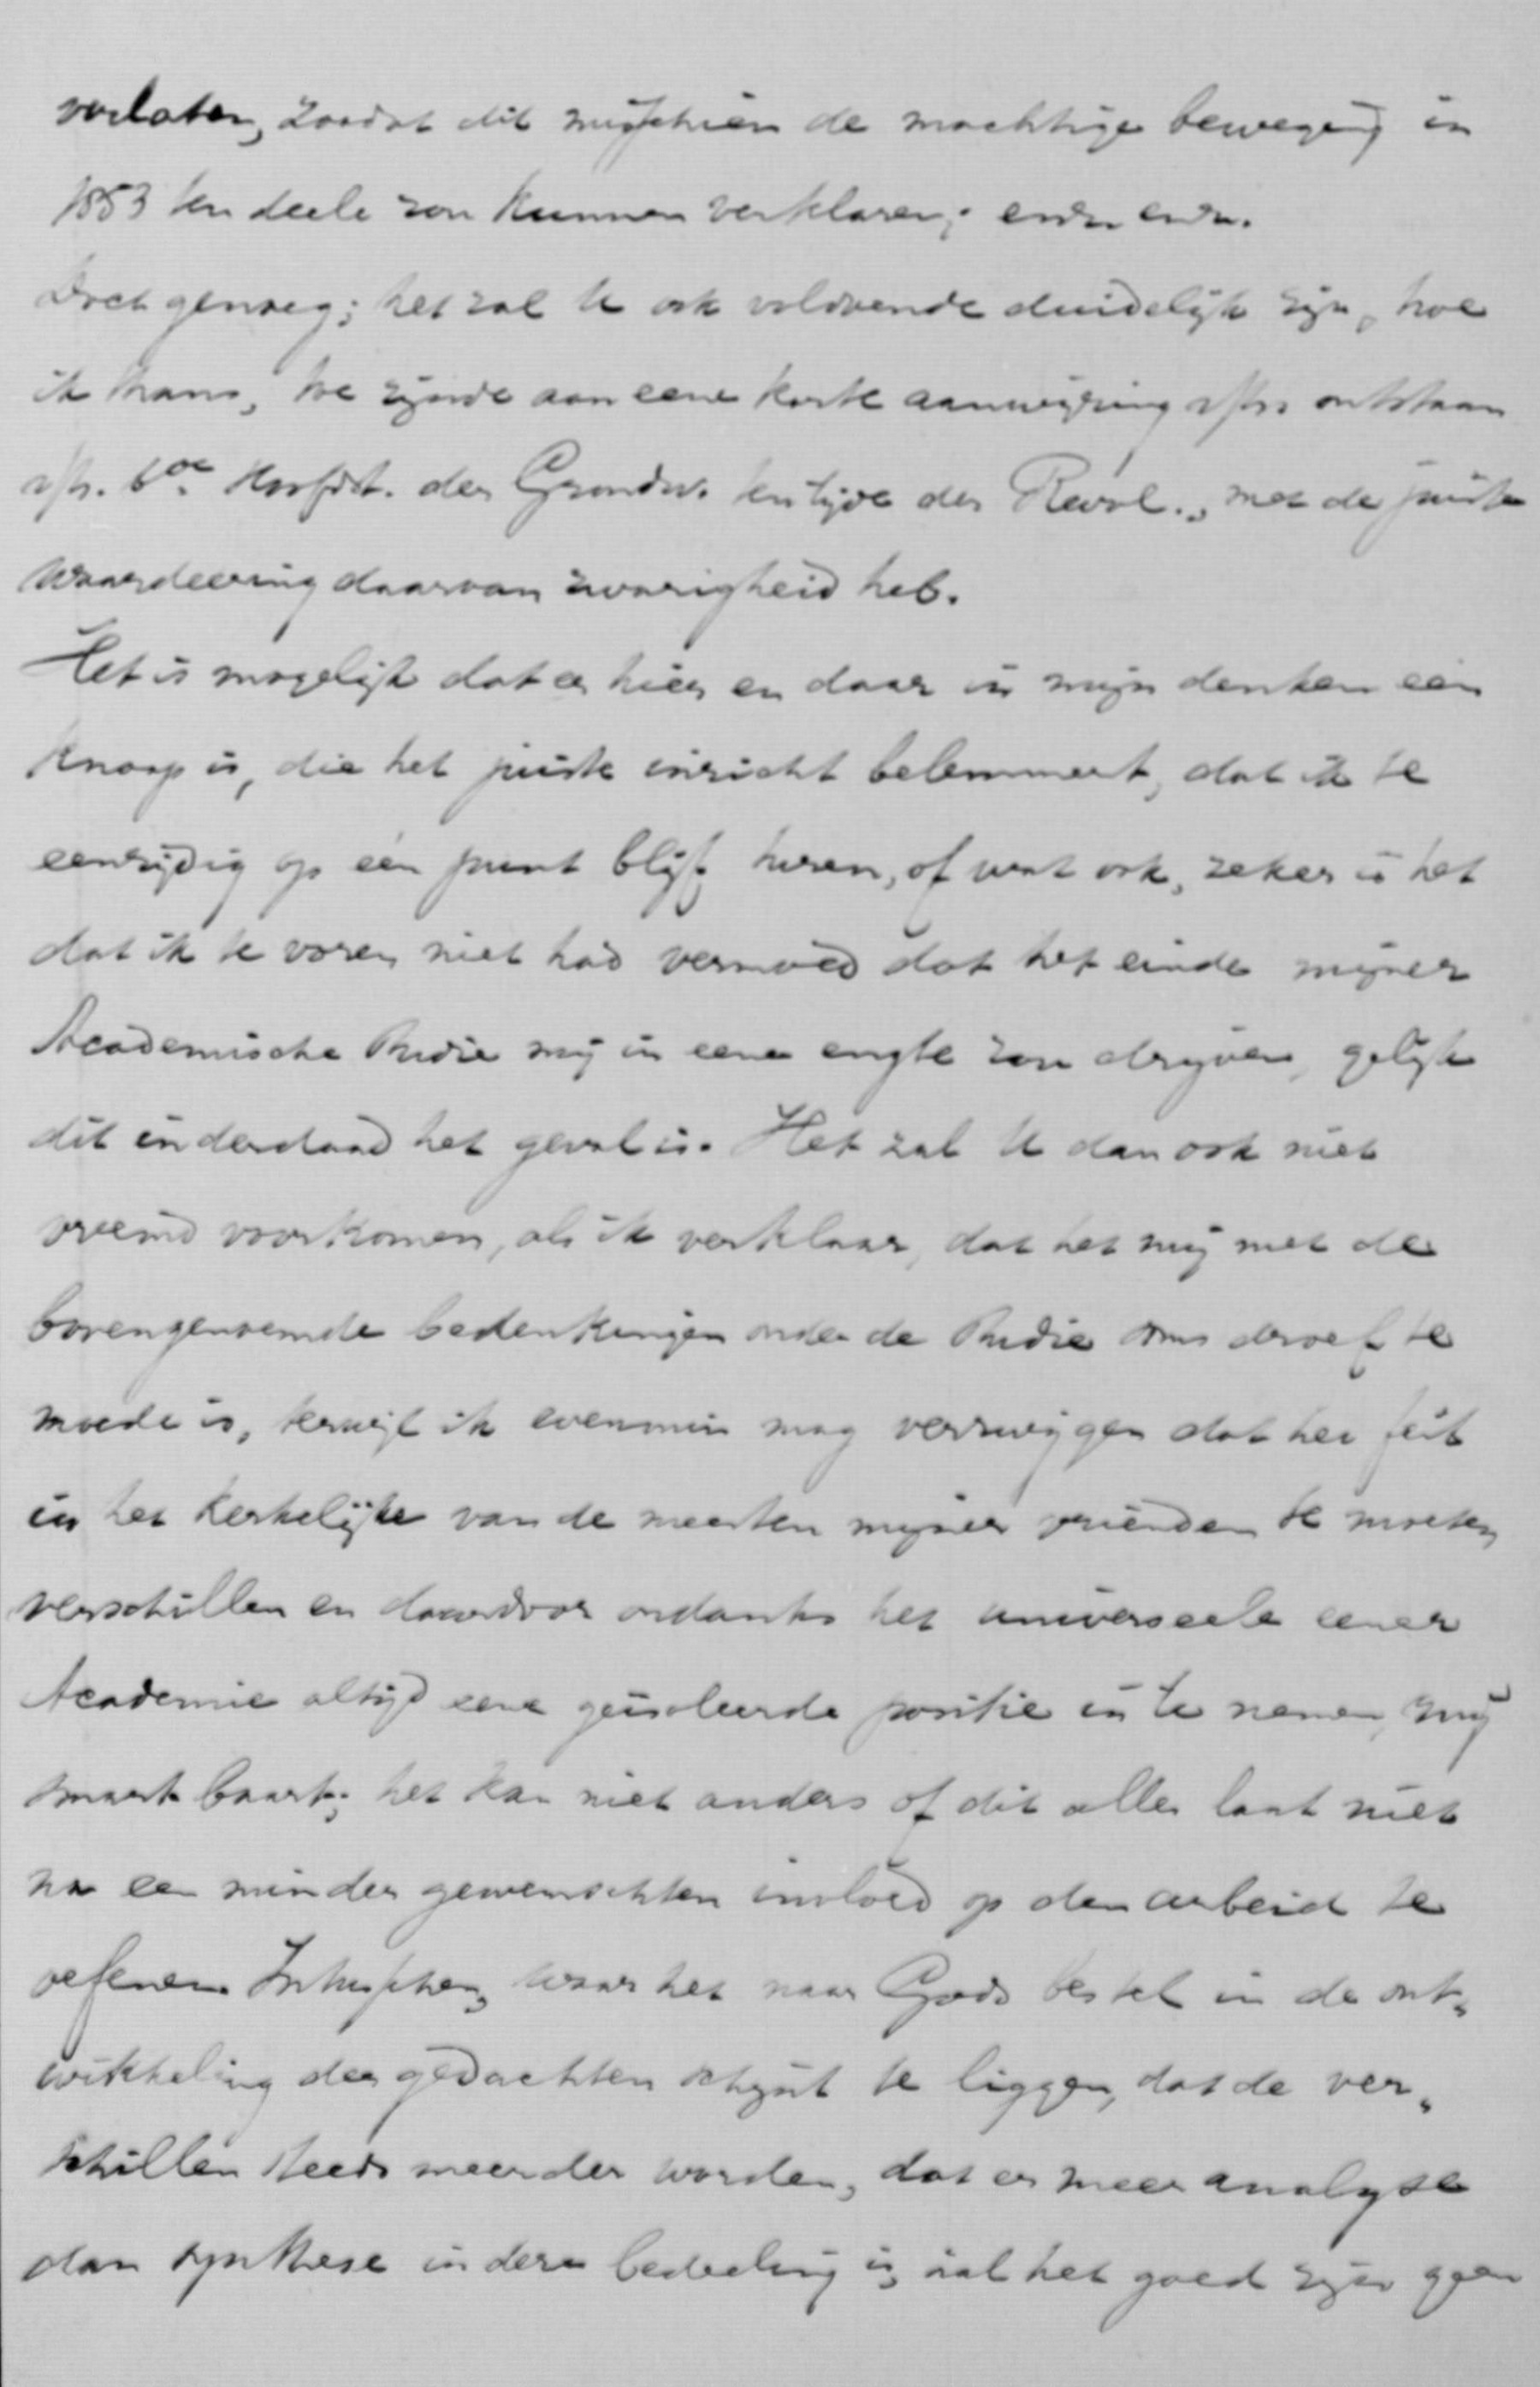 verlaten, zoodat dit misschien de machtige beweging in
1853 ten deele zou kunnen verklaren; enz. enz.
Doch genoeg; het zal U ook voldoende duidelijk zijn, hoe
ik thans, toe zijnde aan eene korte aanwijzing v/h ontstaan
v/h. 6de Hoofdst. der Grondw. ten tijde der Revol., met de juiste
waardeering daarvan zwarigheid heb.
Het is mogelijk dat er hier en daar in mijn denken een
knoop is, die het juiste inzicht belemmert, dat ik te
eenzijdig op één punt blijf turen, of wat ook, zeker is het
dat ik te voren niet had vermoed dat het einde mijner
Academische studie mij in eene engte zou drijven, gelijk
dit inderdaad het geval is. Het zal U dan ook niet
vreemd voorkomen, als ik verklaar, dat het mij met de
bovengenoemde bedenkingen onder de studie soms droef te
moede is, terwijl ik evenmin mag verzwijgen dat het feit
in het kerkelijke van de meesten mijner vrienden te moeten
verschillen en daardoor ondanks het universeele eener
Academie altijd eene geïsoleerde positie in te nemen, mij
smart baart; het kan niet anders of dit alles laat niet
na een minder gewenschten invloed op den arbeid te
oefenen. Intusschen, waar het naar Gods bestel in de ont„
wikkeling der gedachten schijnt te liggen, dat de ver„
schillen steeds meerder worden, dat er meer analyse
dan synthese in deze bedeeling is, zal het goed zijn geen